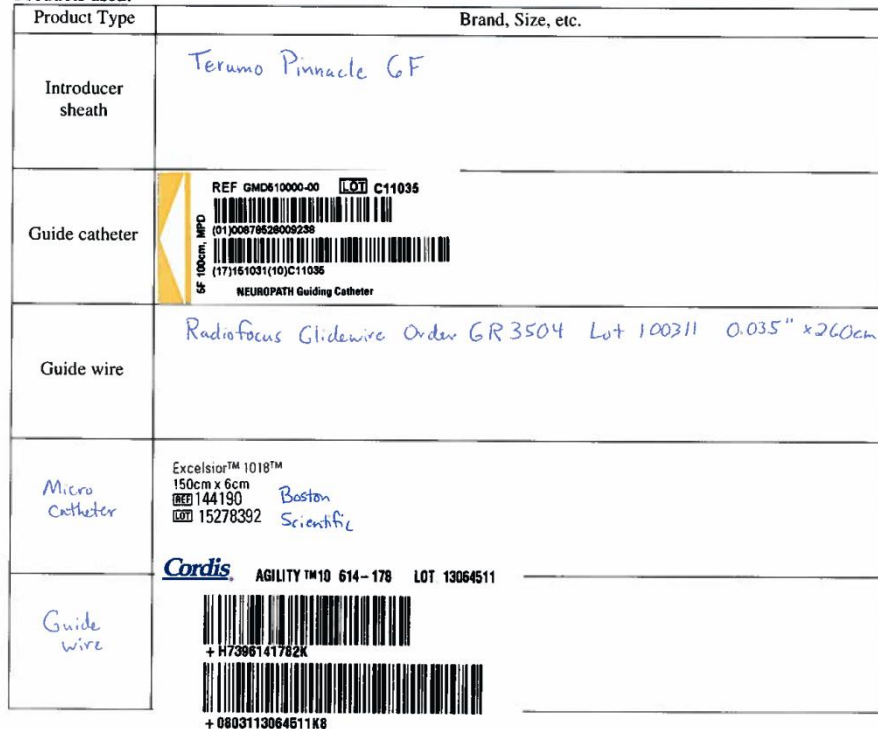 Product Type
Brand, Size, etc.
Introducer
sheath
Terumo Pinnacle 6F
Guide catheter
REF GMD610000-00 LOT C11035
(01)00878528009238
(17)151031(10)C11035
NEUROPATH Guiding Catheter
6F 100cm, MPD
Guide wire
Radiofocus Glidewire Order GR3504 Lot 100311 0.035" x260cm
Micro
Catheter
Excelsior™ 1018™
150cm x 6cm
REF 144190 Boston
LOT 15278392 Scientific
Guide
wire
Cordis® AGILITY™10 614-178 LOT 13064511
+H7396141782K
+0803113064511K8